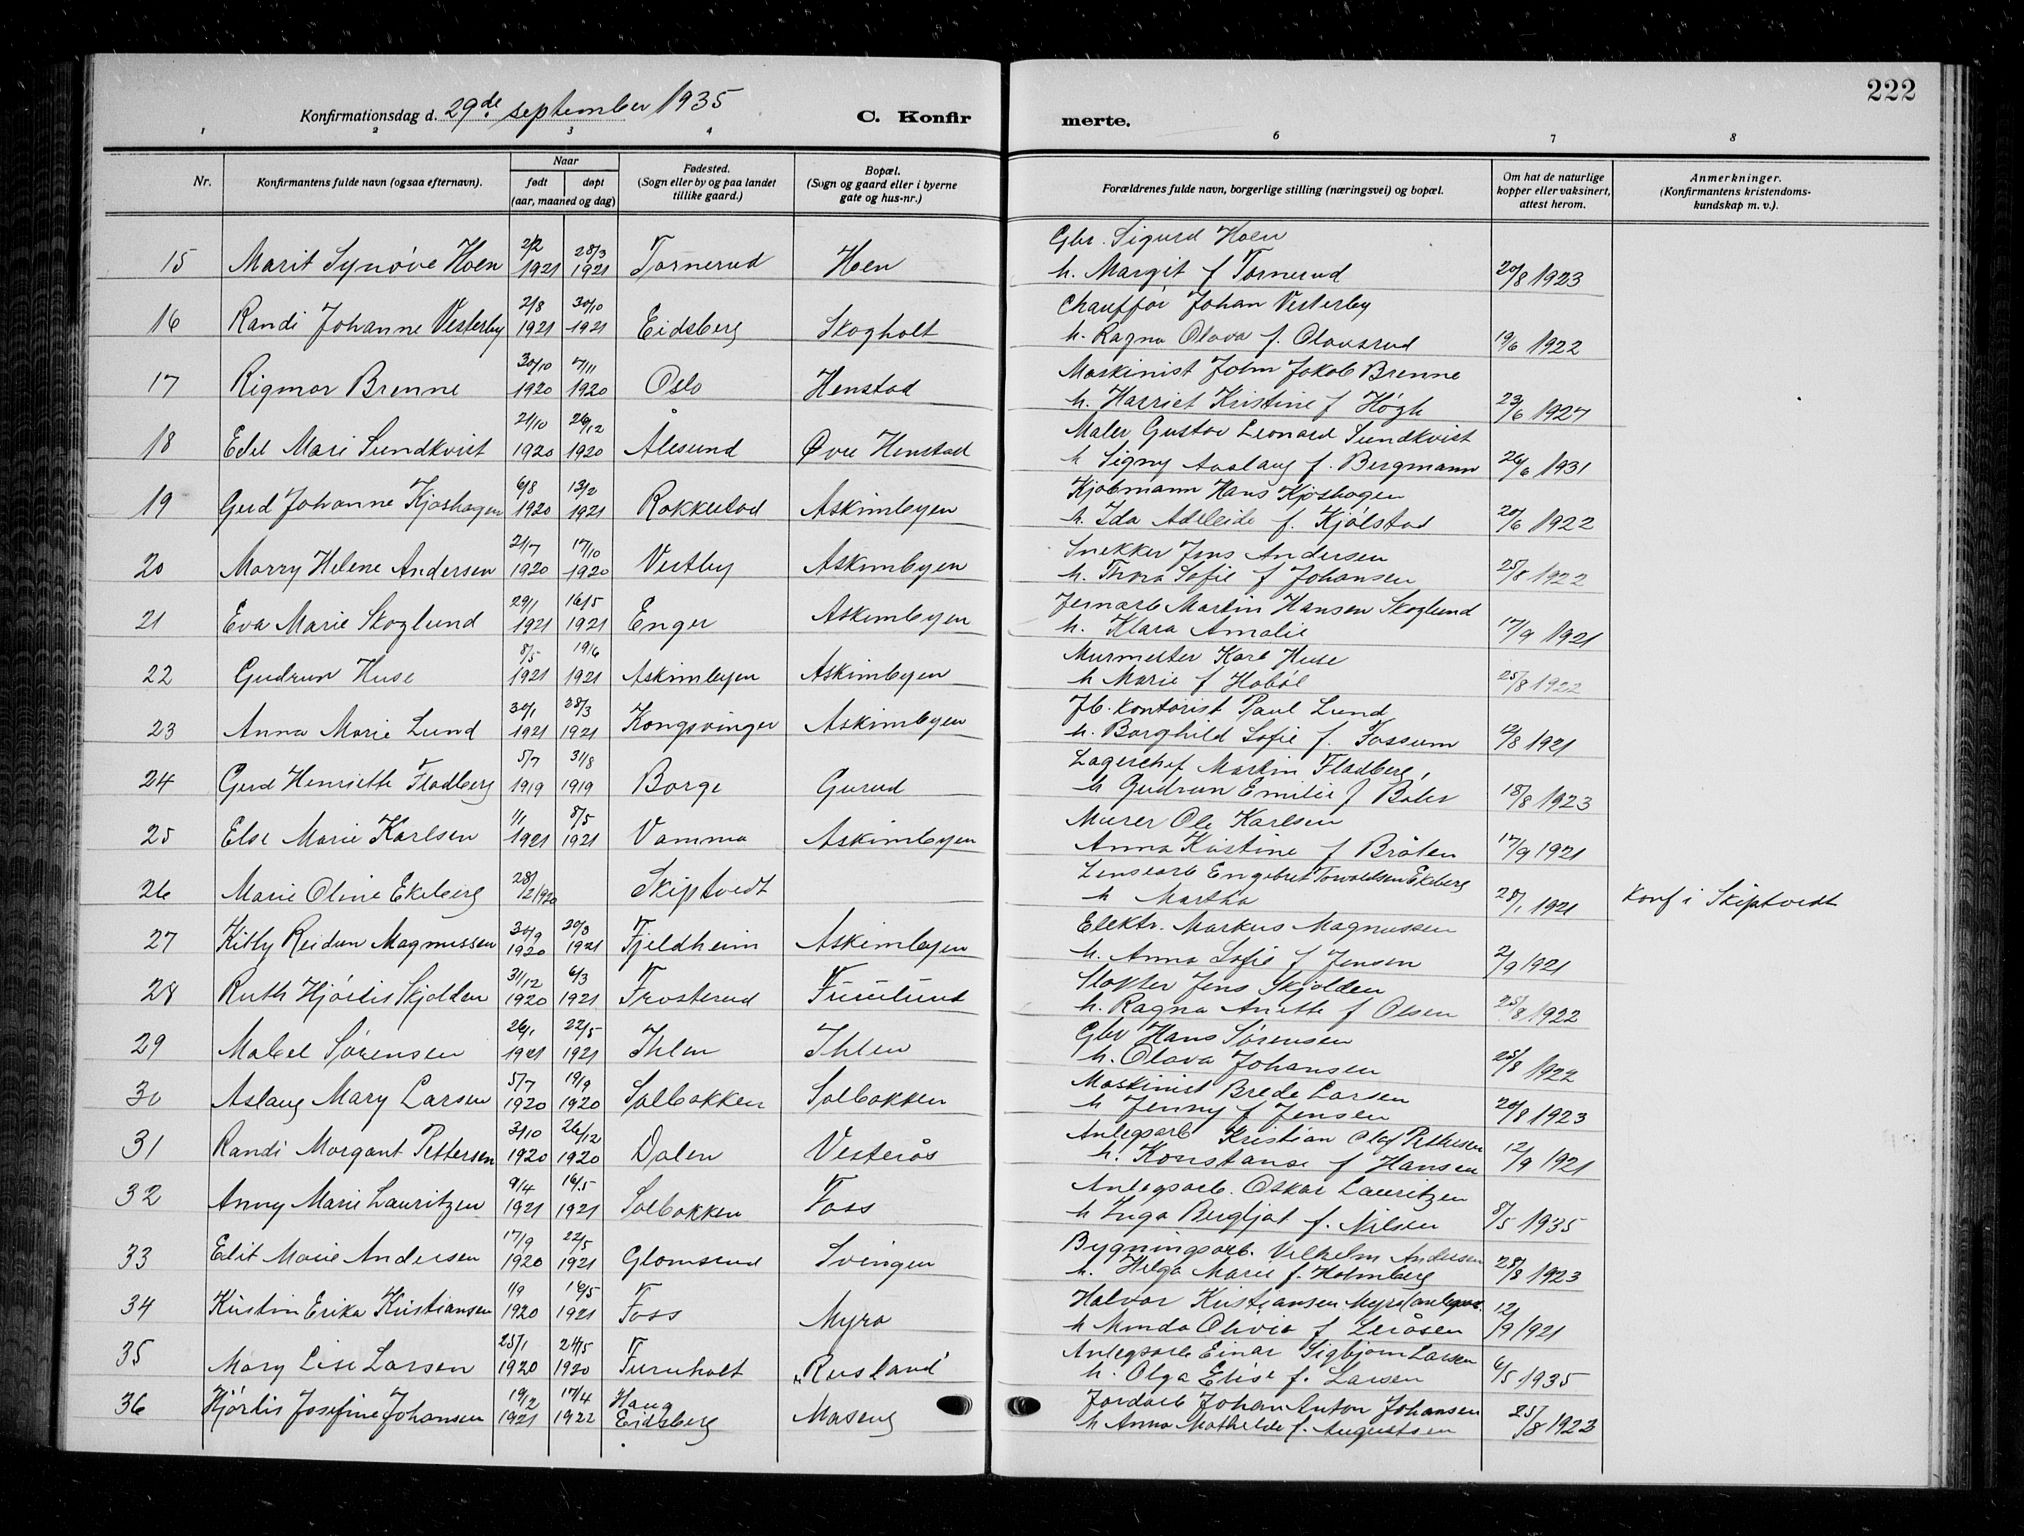 222
Konfirmationsdag d. 29de september 1935 C. Konfirmerte.
1 2 3 4 6 7 8
Nr. Konfirmantens fulde navn (ogsaa efternavn). Naar født døpt (aar, maaned og dag) Fødested. (Sogn eller by og paa landet tillike gaard.) Bopæl. (Sogn og gaard eller i byerne gate og hus-nr.) Forældrenes fulde navn, borgerlige stilling (næringsvei) og bopæl. Om hat de naturlige kopper eller vaksinert, attest herom. Anmerkninger. (Konfirmantens kristendoms-kundskap m. v.).
15 Marit Synøve Hoen 2/2 1921 28/3 1921 Tornerud Hoen Gbr. Sigurd Hoen
h. Margit f Tornerud 20/8 1923
16 Randi Johanne Vesterby 2/8 1921 30/10 1921 Eidsberg Skogholt Chauffør Johan Vesterby
h. Ragna Olava f. Olausrud 19/6 1922
17 Rigmor Brenne 30/10 1920 7/11 1920 Oslo Henstad Maskinist John Jakob Brenne
h. Harriet Kristine f Høgh 23/6 1927
18 Edel Mari Sundkvist 21/10 1920 26/12 1920 Ålesund Øvre Henstad Maler Gustav Leonard Sundkvist
h Signy Aaslaug f. Bergmann 26/6 1931
19 Gerd Johanne Kjoshagen 6/8 1920 13/2 1921 Rakkestad Askimbyen Kjøbmann Hans Kjoshagen
h. Ida Adeleide f. Kjølstad 20/6 1922
20 Marry Helene Andersen 21/7 1920 17/10 1920 Vestby Askimbyen Snekker Jens Andersen
h. Thora Sofie f Johansen 25/8 1922
21 Eva Marie Skoglund 29/1 1921 16/5 1921 Enger Askimbyen Jernarb Martin Hansen Skoglund
h. Klara Amalie 17/9 1921
22 Gudrun Huse 8/5 1921 19/6 1921 Askimbyen Askimbyen Murmester Karl Huse
h Marie f Hobøl 25/8 1922
23 Anna Marie Lund 30/1 1921 28/3 1921 Kongsvinger Askimbyen Jb. kontorist Paul Lund
h. Borghild Sofie f. Fossum 12/8 1921
24 Gerd Henriette Fladberg 5/7 1919 31/8 1919 Borge Gurud Lagerchef Martin Fladberg,
h Gudrun Emilie f Boler 18/8 1923
25 Else Marie Karlsen 1/1 1921 8/5 1921 Vamma Askimbyen Murer Ole Karlsen
Anna Kristine f Bråten 17/9 1921
26 Marie Oline Ekeberg 28/12 1920 Skiptvedt Lensearb Engebret Torvaldsen Ekeberg
h Martha 28/1 1921 Konf i Skiptvedt
27 Kitty Reidun Magnussen 30/9 1920 20/3 1921 Fjeldheim Askimbyen Elektr. Markus Magnussen
h. Anna Sofie f Jensen 2/9 1921
28 Ruth Hjørdis Skjolden 31/12 1920 6/3 1921 Frosterud Furulund Slakter Jens Skjolden
h. Ragna Anette f Olsen 25/8 1922
29 Mabel Sørensen 26/1 1921 22/5 1921 Ihlen Ihlen Gbr Hans Sørensen
h. Olava Johansen 25/8 1922
30 Aslaug Mary Larsen 5/7 1920 19/9 1920 Solbakken Solbakken Maskinist Brede Larsen
h Jenny f Jensen 20/8 1923
31 Randi Margant Pettersen 3/10 1920 26/12 1920 Dalen Vesterås Anlegsarb Kristian Olaf Pettersen
h. Konstanse f Hansen 12/9 1921
32 Anny Marie Lauritzen 9/4 1921 16/5 1921 Solbakken Foss Anlegsarb. Oskar Lauritzen
h Inga Bergljot f. Nilsen 8/5 1935
33 Edit Marie Andersen 17/9 1920 22/5 1921 Glomsrud Svingen Bygningsarb. Vilhelm Andersen
h. Helga Marie f. Holmberg 28/8 1923
34 Kristin Erika Kristiansen 1/9 1920 16/5 1921 Foss Myra Halvor Kristiansen Myra (anlegsar.
h Minda Olivia f Leråsen 12/9 1921
35 Mary Lise Larsen 25/1 1920 24/5 1920 Furuholt "Rusland" Anlegsarb Einar Sigbjorn Larsen
h. Olga Elise f. Larsen 6/5 1935
36 Hjørdis Josefine Johansen 19/2 1921 17/4 1922 Haug Eidsberg Maseng Jordarb Johan Anton Johansen
h Anna Mathilde f. Augustsen 25/8 1923